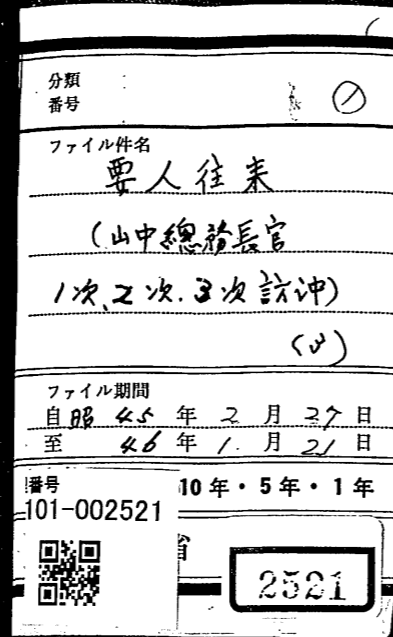 分類
番号
ファイル件名
要人往来
(山中總務長官
1次、2次、3次訪沖)
ファイル期間
自昭45年2月27日
至 46年1月21日
番号
10年・5年・1年
101-002521
省
2521